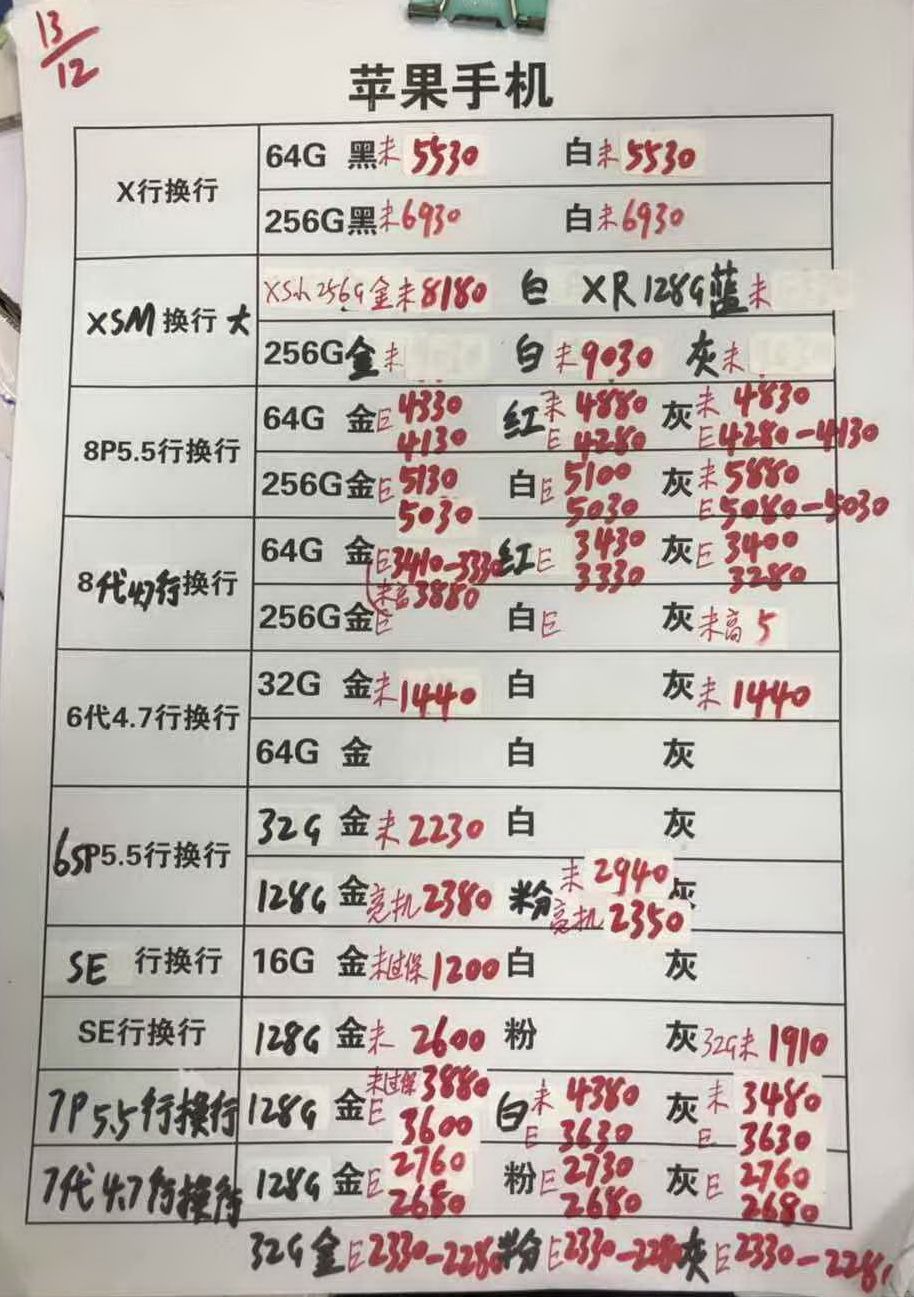 13/12
苹果手机
X行换行
64G 黑未5530 白未5530
256G黑未6930 白未6930
XSM换行大
XSM 256G金未8180 白 XR128G蓝未
256G金未 白未9030 灰未
8P5.5行换行
64G 金E4330 红未4880 灰未4830
4130 E4280 E4280-4130
256G金E5130 白E5100 灰未5880
5030 5030 E5080-5030
8代4.7行换行
64G 金E3410-3330 红E3430 灰E3400
未高3880 3330 3280
256G金E 白E 灰未高5
6代4.7行换行
32G 金未1440 白 灰未1440
64G 金 白 灰
6SP5.5行换行
32G 金未2230 白 灰
128G 金亮机2380 粉未2940 灰
亮机2350
SE 行换行
16G 金未过保1200白 灰
SE行换行
128G 金未2600 粉 灰32G未1910
7P5.5行换行
128G 金未过保3880 白未4380 灰未3480
E3600 E3630 E3630
7代4.7行换行
128G 金E2760 粉E2730 灰E2760
2680 2680 2680
32G金E2330-2280粉E2330-2280灰E2330-228